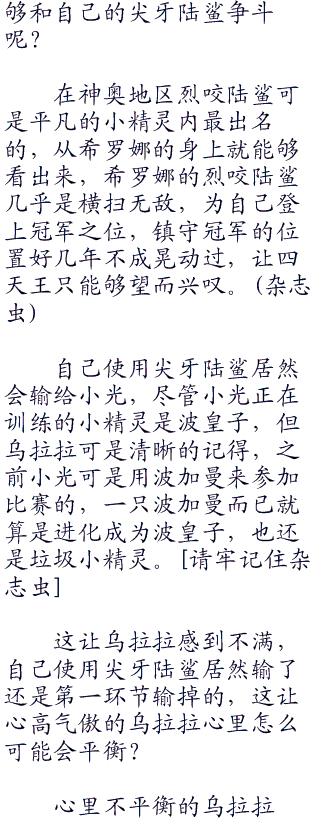 够和自己的尖牙陆鲨争斗
呢？
在神奥地区烈咬陆鲨可
是平凡的小精灵内最出名
的，从希罗娜的身上就能够
看出来，希罗娜的烈咬陆鲨
几乎是横扫无敌，为自己登
上冠军之位，镇守冠军的位
置好几年不成晃动过，让四
天王只能够望而兴叹。（杂志
虫）
自己使用尖牙陆鲨居然
会输给小光，尽管小光正在
训练的小精灵是波皇子，但
乌拉拉可是清晰的记得，之
前小光可是用波加曼来参加
比赛的，一只波加曼而已就
算是进化成为波皇子，也还
是垃圾小精灵。[请牢记住杂
志虫]
这让乌拉拉感到不满，
自己使用尖牙陆鲨居然输了
还是第一环节输掉的，这让
心高气傲的乌拉拉心里怎么
可能会平衡？
心里不平衡的乌拉拉